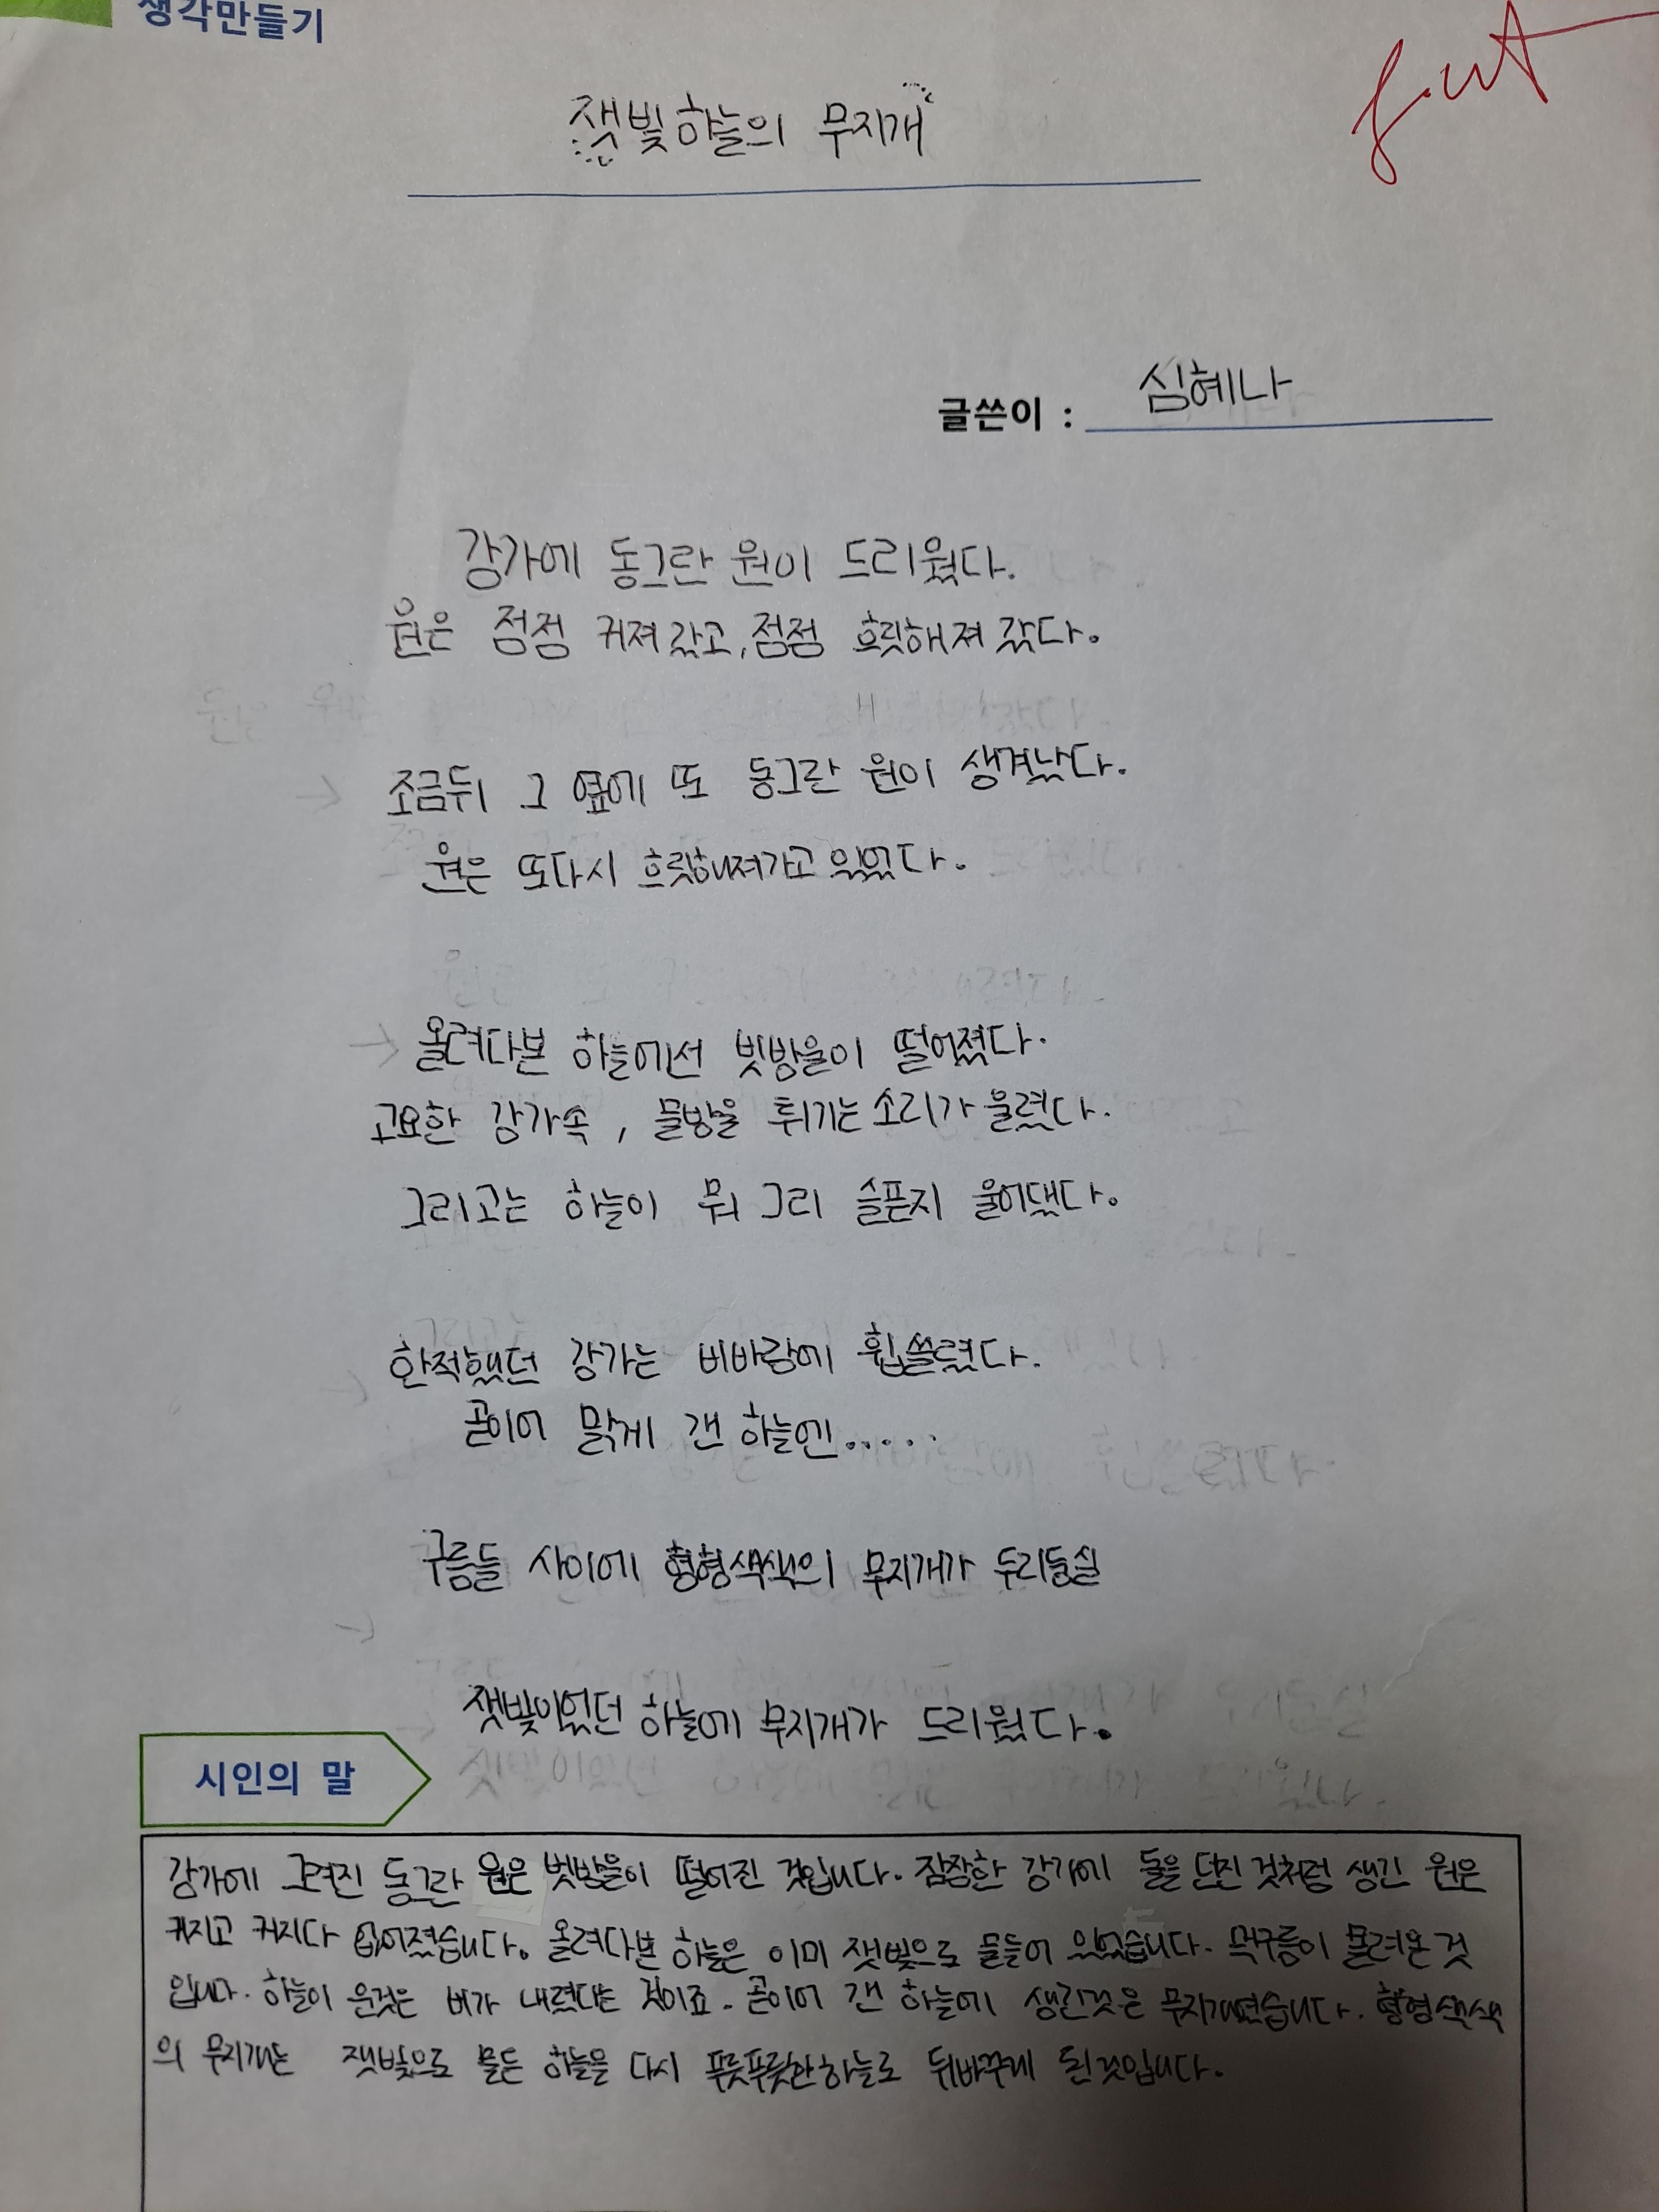 생각만들기
잿빛하늘의 무지개
글쓴이 : 심혜나
강가에 동그란 원이 드리웠다.
원은 점점 커져갔고, 점점 흐릿해져 갔다.
조금뒤 그 옆에 또 동그란 원이 생겨났다.
원은 또다시 흐릿해져가고 있었다.
올려다본 하늘에선 빗방울이 떨어졌다.
고요한 강가속, 물방울 튀기는 소리가 울렸다.
그리고는 하늘이 뭐 그리 슬픈지 울어댔다.
한적했던 강가는 비바람에 휩쓸렸다.
곧이어 맑게 갠 하늘엔.....
구름들 사이에 형형색색의 무지개가 두리둥실
잿빛이었던 하늘에 무지개가 드리웠다.
시인의 말
강가에 그려진 동그란 원은 빗방울이 떨어진 것입니다. 잠잠한 강가에 돌을 던진 것처럼 생긴 원은
커지고 커지다 없어졌습니다. 올려다본 하늘은 이미 잿빛으로 물들어 있었습니다. 먹구름이 몰려온 것
입니다. 하늘이 운것은 비가 내렸다는 것이죠. 곧이어 갠 하늘에 생긴것은 무지개였습니다. 형형색색
의 무지개는 잿빛으로 물든 하늘을 다시 푸릇푸릇한하늘로 뒤바꾸게 된것입니다.